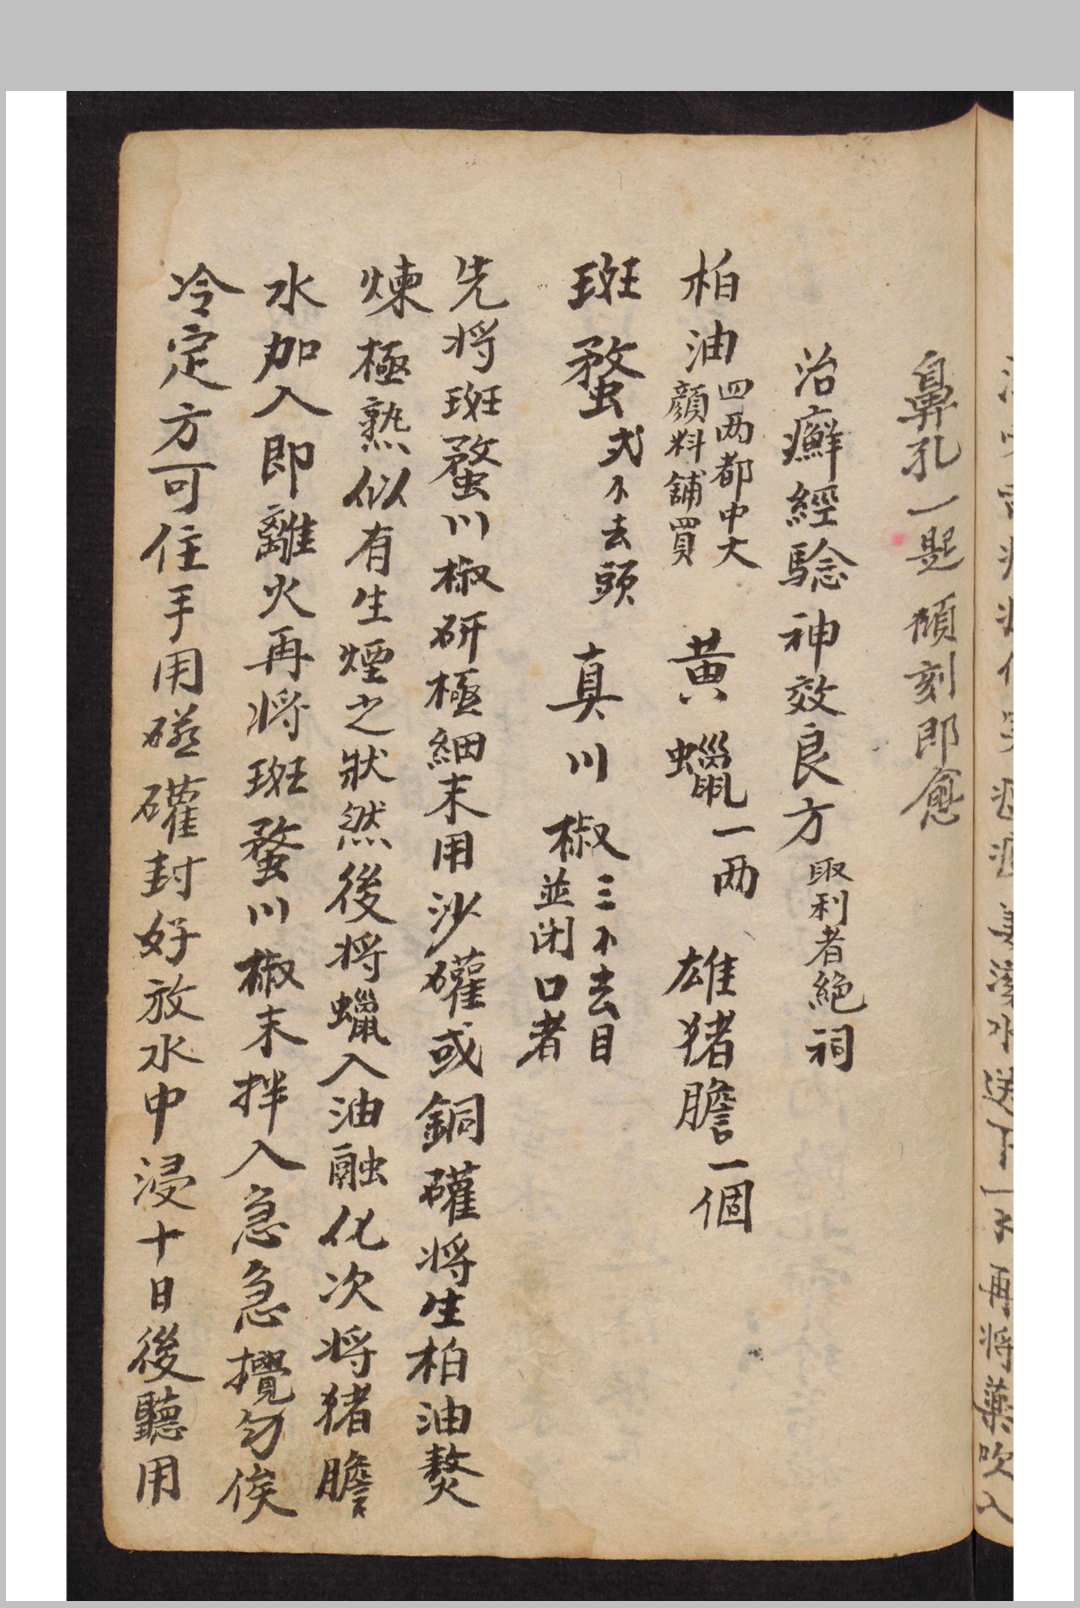 鼻孔一匙傾刻即愈
治癬經驗神效良方 取利者絕祠
柏油 四两都中大
顔料舖買 黃蠟一两 雄猪膽一個
斑蝥 弍小去頭 真川椒 三小去目
並闭口者
先将斑蝥川椒研極細末用沙礶或銅礶将生柏油熬
煉極熟似有生煙之狀然後将蠟入油融化次将猪膽
水加入即離火再将斑蝥川椒末拌入急急攪匀俟
冷定方可住手用磁礶封好放水中浸十日後聽用